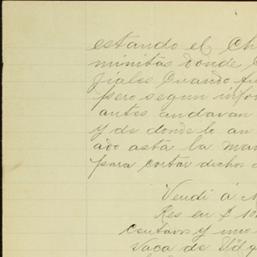 estando el Ch
minitas donde
Jiales Cuando fu
pero segun infor
antes andavan
y de donde lo an
ado astá la mar
para cortar dichos
Vendi á M
Res en $ 10
centavos y uno
Vaca de Ud y